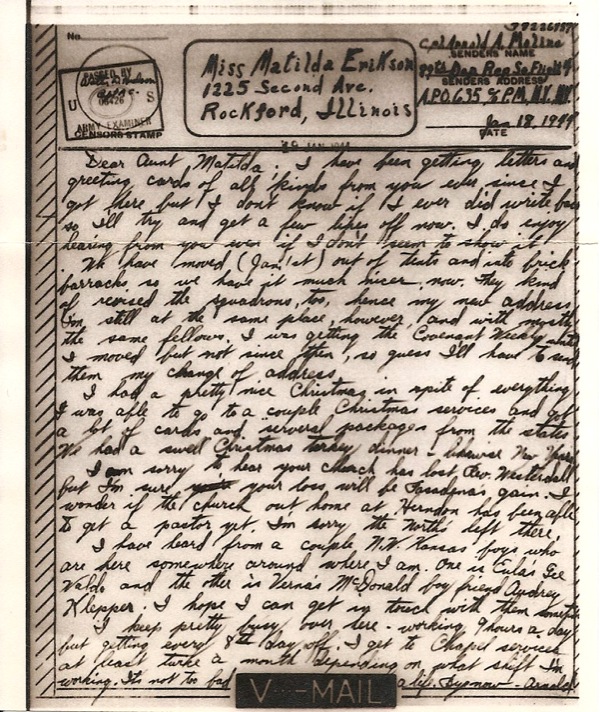 No.
PASSED BY
U S
06426
ARMY EXAMINER
CENSORS STAMP
Miss Matilda Erikson
1225 Second Ave.
Rockford, Illinois
Cpl Arnold A. Moline
SENDERS NAME
89th Dep Rep Sq Flight
SENDERS ADDRESS
A.P.O. 635 % P.M. N.Y. N.Y.
Jan 18, 1944
DATE
Dear Aunt Matilda: I have been getting letters and
greeting cards of all kinds from you ever since I
got here but I don't know if I ever did write back
so I'll try and get a few lines off now. I do enjoy
hearing from you even if I don't seem to show it.
We have moved (Jan. 1st) out of tents and into brick
barracks so we have it much nicer now. They kind
of revised the squadrons, too, hence my new address.
I'm still at the same place, however, and with mostly
the same fellows. I was getting the Covenant Weekly until
I moved but not since then, so guess I'll have to send
them my change of address.
I had a pretty nice Christmas in spite of everything
I was able to go to a couple Christmas services and got
a lot of cards and serveral packages from the states.
We had a swell Christmas turkey dinner - likewise New Years
I am sorry to hear your church has lost Rev. Westerdahl
but I'm sure your loss will be Pasadena's gain. I
wonder if the church out home at Herndon has been able
to get a pastor yet. I'm sorry the North's left there.
I have heard from a couple N.W. Kansas boys who
are here somewhere around where I am. One is Eula's Gee
Waldo and the other is Verna's McDonald boy friend Audrey
Klepper. I hope I can get in touch with them sometime
I keep pretty busy over here - working 9 hours a day
but getting every 8th day off. I get to Chapel services
at least twice a month depending on what shift I'm
working. It's not too bad a life. Bye now - Arnold
V - MAIL